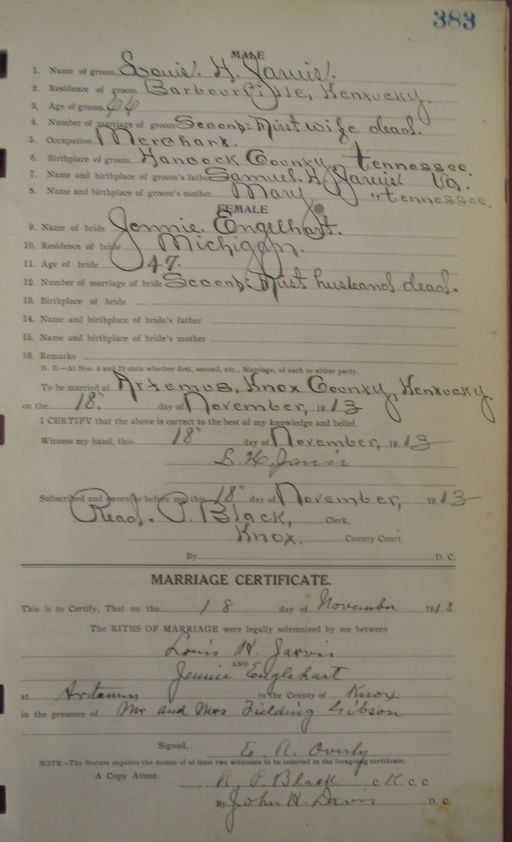 383
MALE
1. Name of groom Louis. H. Jarvis.
2. Residence of groom Barbourville, Kentucky.
3. Age of groom
4. Number of marriage of groom Second: First wife dead.
5. Occupation Merchant.
6. Birthplace of groom Hancock County, Tennessee.
7. Name and birthplace of groom's father Samuel G Jarvis Va.
8. Name and birthplace of groom's mother Mary " Tennessee
FEMALE
9. Name of bride Jennie. Engelhart.
10. Residence of bride Michigan.
11. Age of bride 47.
12. Number of marriage of bride Second: First husband dead.
13. Birthplace of bride
14. Name and birthplace of bride's father
15. Name and birthplace of bride's mother
16. Remarks
N. B.—At Nos. 4 and 12 state whether first, second, etc., Marriage, of each or either party.
To be married at Artemus, Knox County, Kentucky.
on the 18" day of November, 1913
I CERTIFY that the above is correct to the best of my knowledge and belief.
Witness my hand, this 18" day of November, 1913
L. H. Jarvis
Subscribed and sworn to before me this 18" day of November, 1913
Read. P. Black, Clerk,
Knox. County Court.
By D. C.
MARRIAGE CERTIFICATE.
This is to Certify, That on the 18 day of November 1913
The RITES OF MARRIAGE were legally solemnized by me between
Louis H. Jarvis
AND
Jennie Englehart
at Artemus in the County of Knox
in the presence of Mr and Mrs Fielding Gibson
Signed, E. A. Overby
NOTE—The Statute requires the names of at least two witnesses to be inserted in the foregoing certificate.
A Copy Attest: R. P. Black C K C C
By John H. Davis D. C.